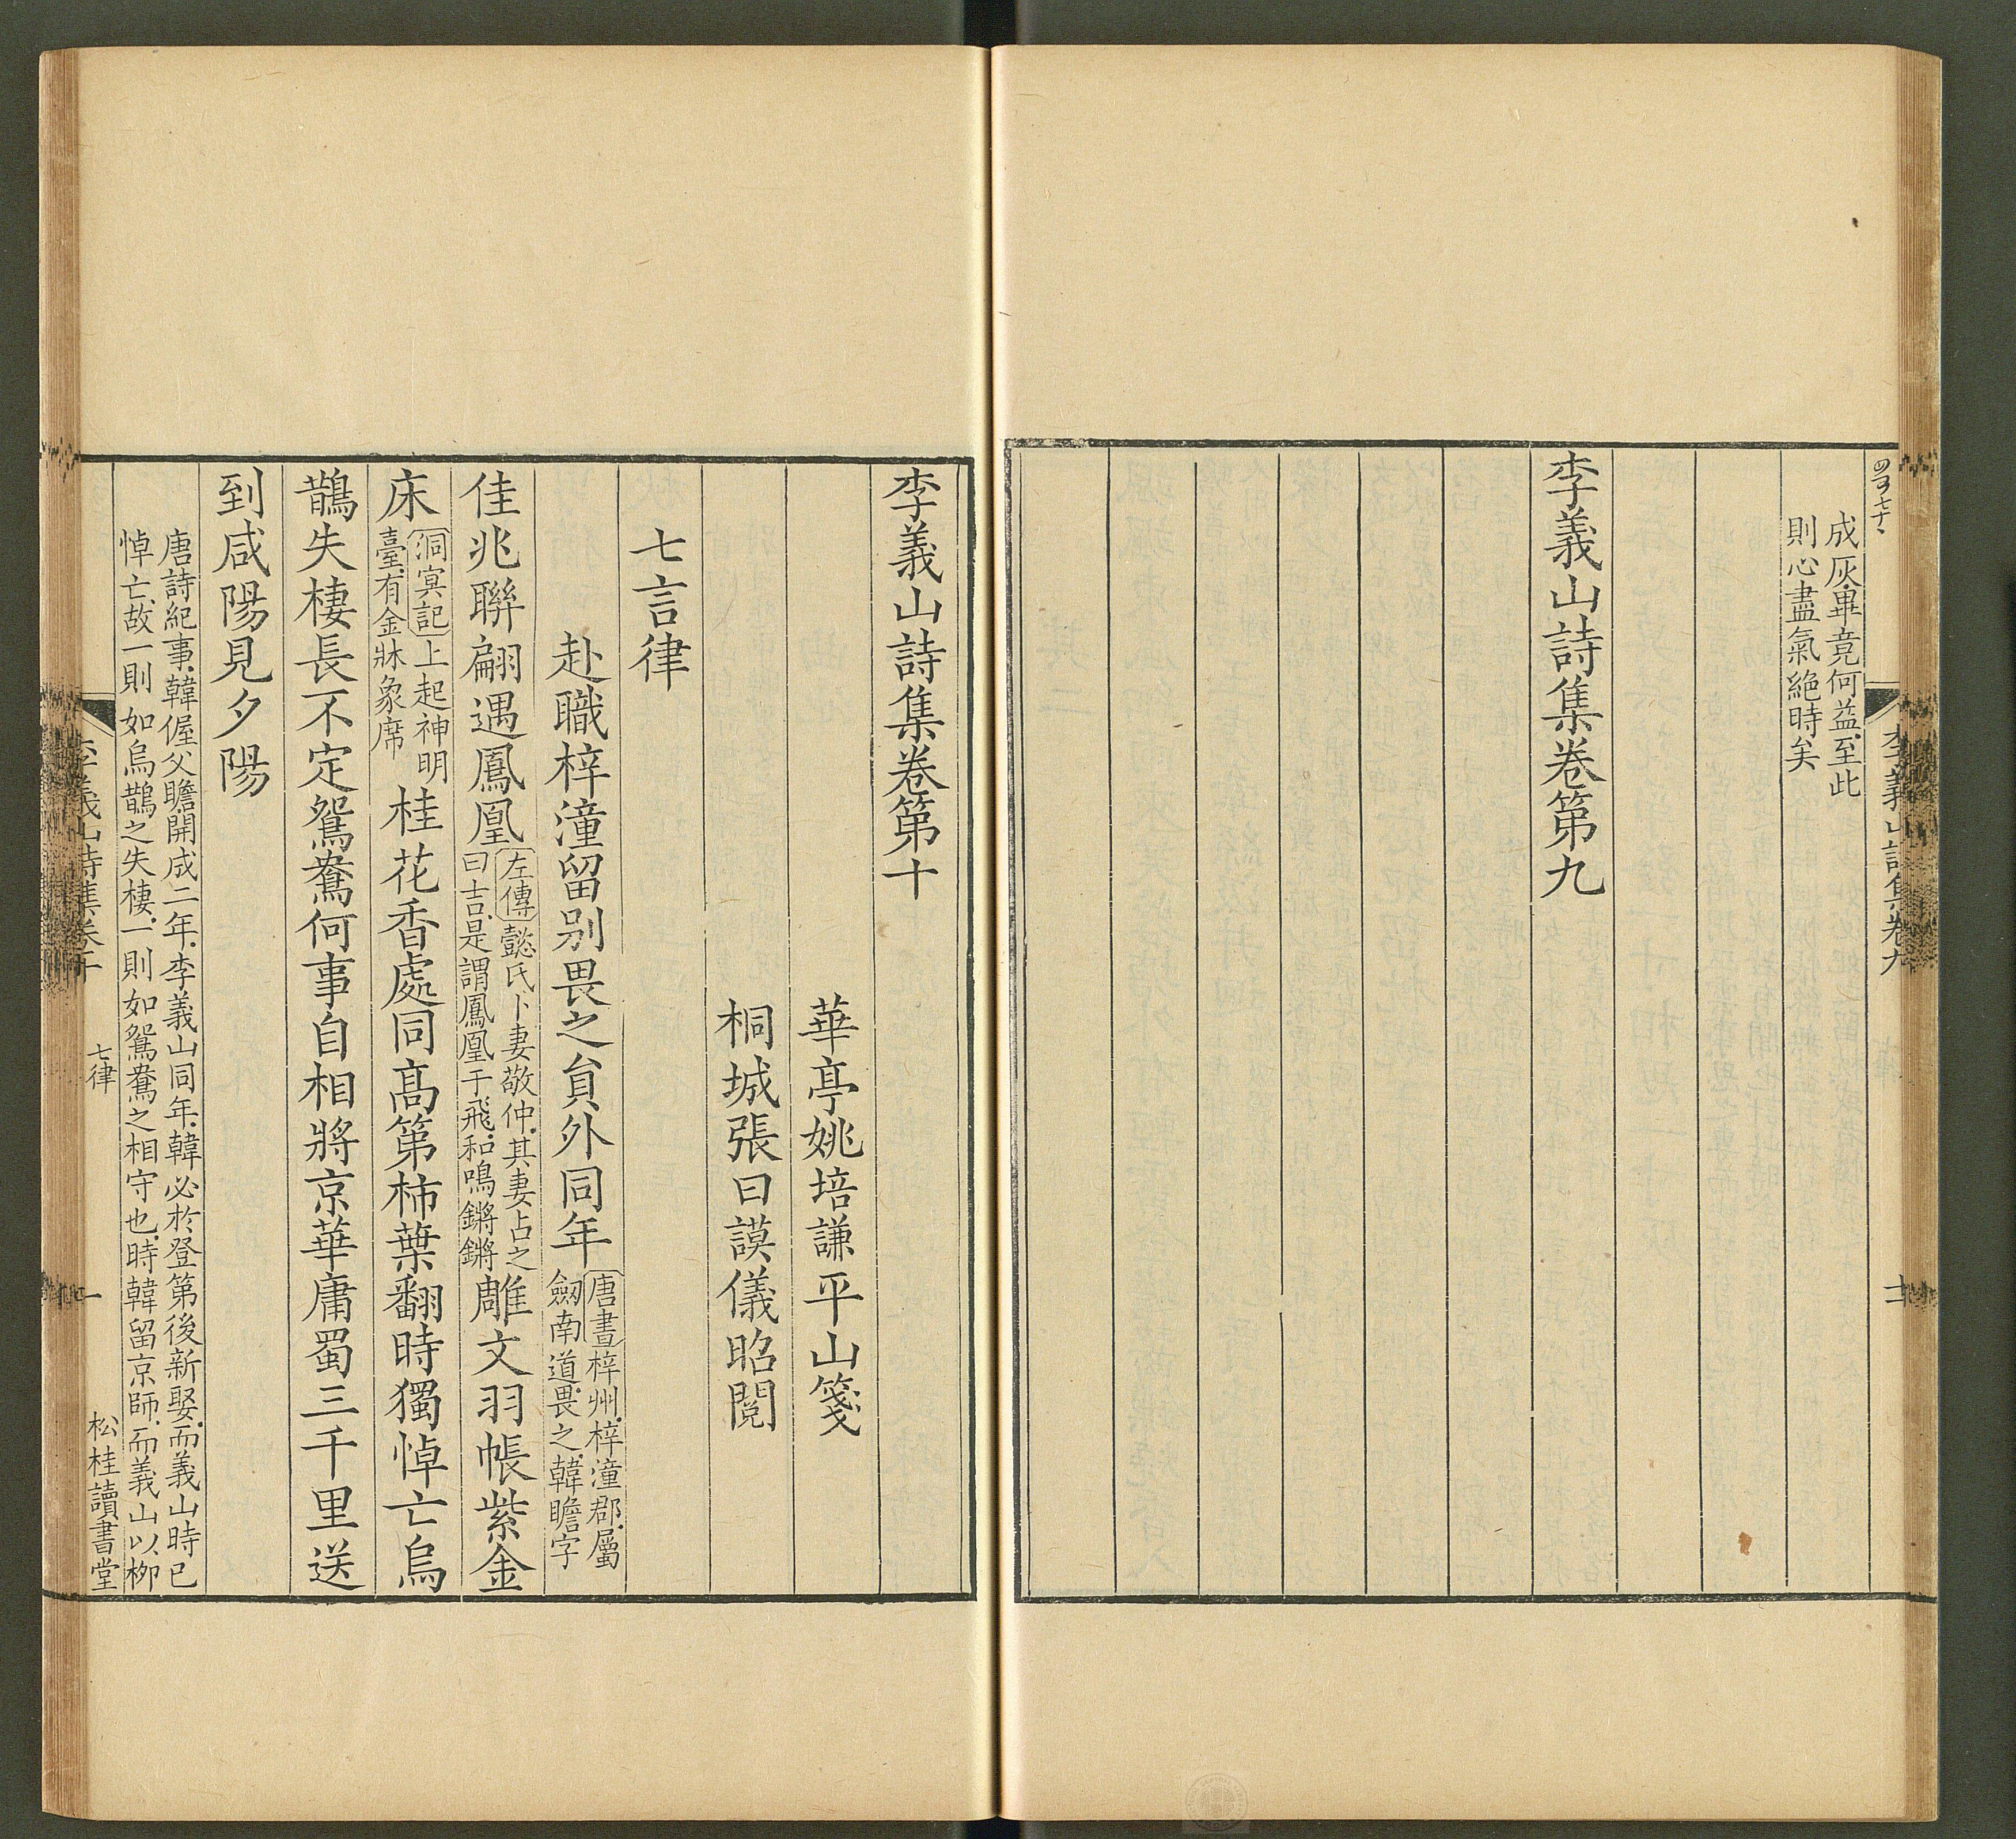 成灰畢竟何益至此
則心盡氣絕時矣
李義山詩集卷第九
李義山詩集卷九
李義山詩集卷第十
華亭姚培謙平山箋
桐城張曰謨儀昭閱
七言律
赴職梓潼留别畏之貟外同年唐書梓州梓潼郡屬
劔南道畏之韓瞻字
佳兆聯翩遇鳳凰左傳懿氏卜妻敬仲其妻占之
曰吉是謂鳳凰于飛和鳴鏘鏘雕文羽帳紫金
床洞冥記上起神明
臺有金牀象席桂花香處同髙第柿葉翻時獨悼亡烏
鵲失棲長不定鴛鴦何事自相將京華庸蜀三千里送
到咸陽見夕陽
唐詩紀事韓偓父瞻開成二年李義山同年韓必於登第後新娶而義山時已
悼亡故一則如烏鵲之失棲一則如鴛鴦之相守也時韓留京師而義山以栁
李義山詩集卷十
七律
一
松桂讀書堂